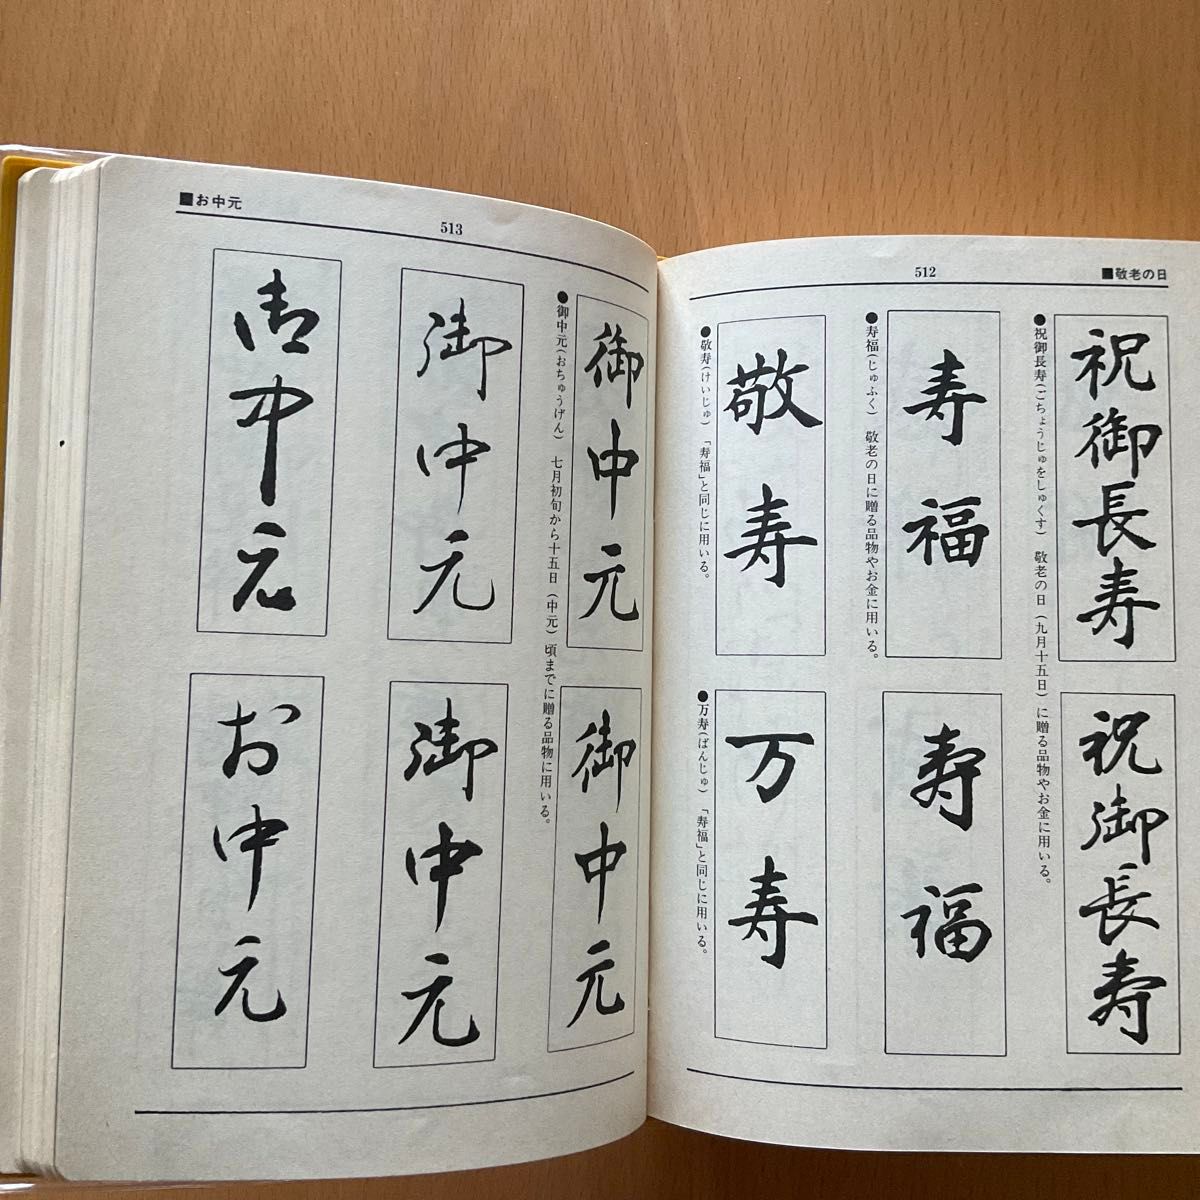 ■敬老の日
512
祝御長寿
祝御長寿
●祝御長寿(ごちょうじゅをしゅくす) 敬老の日(九月十五日)に贈る品物やお金に用いる。
寿福
寿福
●寿福(じゅふく) 敬老の日に贈る品物やお金に用いる。
敬寿
●敬寿(けいじゅ) 「寿福」と同じに用いる。
万寿
●万寿(ばんじゅ) 「寿福」と同じに用いる。
■お中元
513
御中元
御中元
●御中元(おちゅうげん) 七月初旬から十五日(中元)頃までに贈る品物に用いる。
御中元
御中元
御中元
お中元